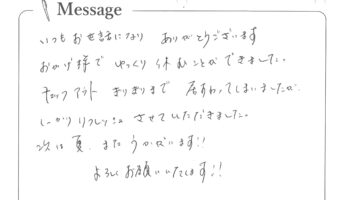 Message
いつもお世話になり ありがとうございます
おかげ様で ゆっくり休むことができました。
チェックアウト ぎりぎりまで 居すわってしまいましたが、
しっかりリフレッシュ させていただきました。
次は夏、また うかがいます!!
よろしくお願いいたします!!